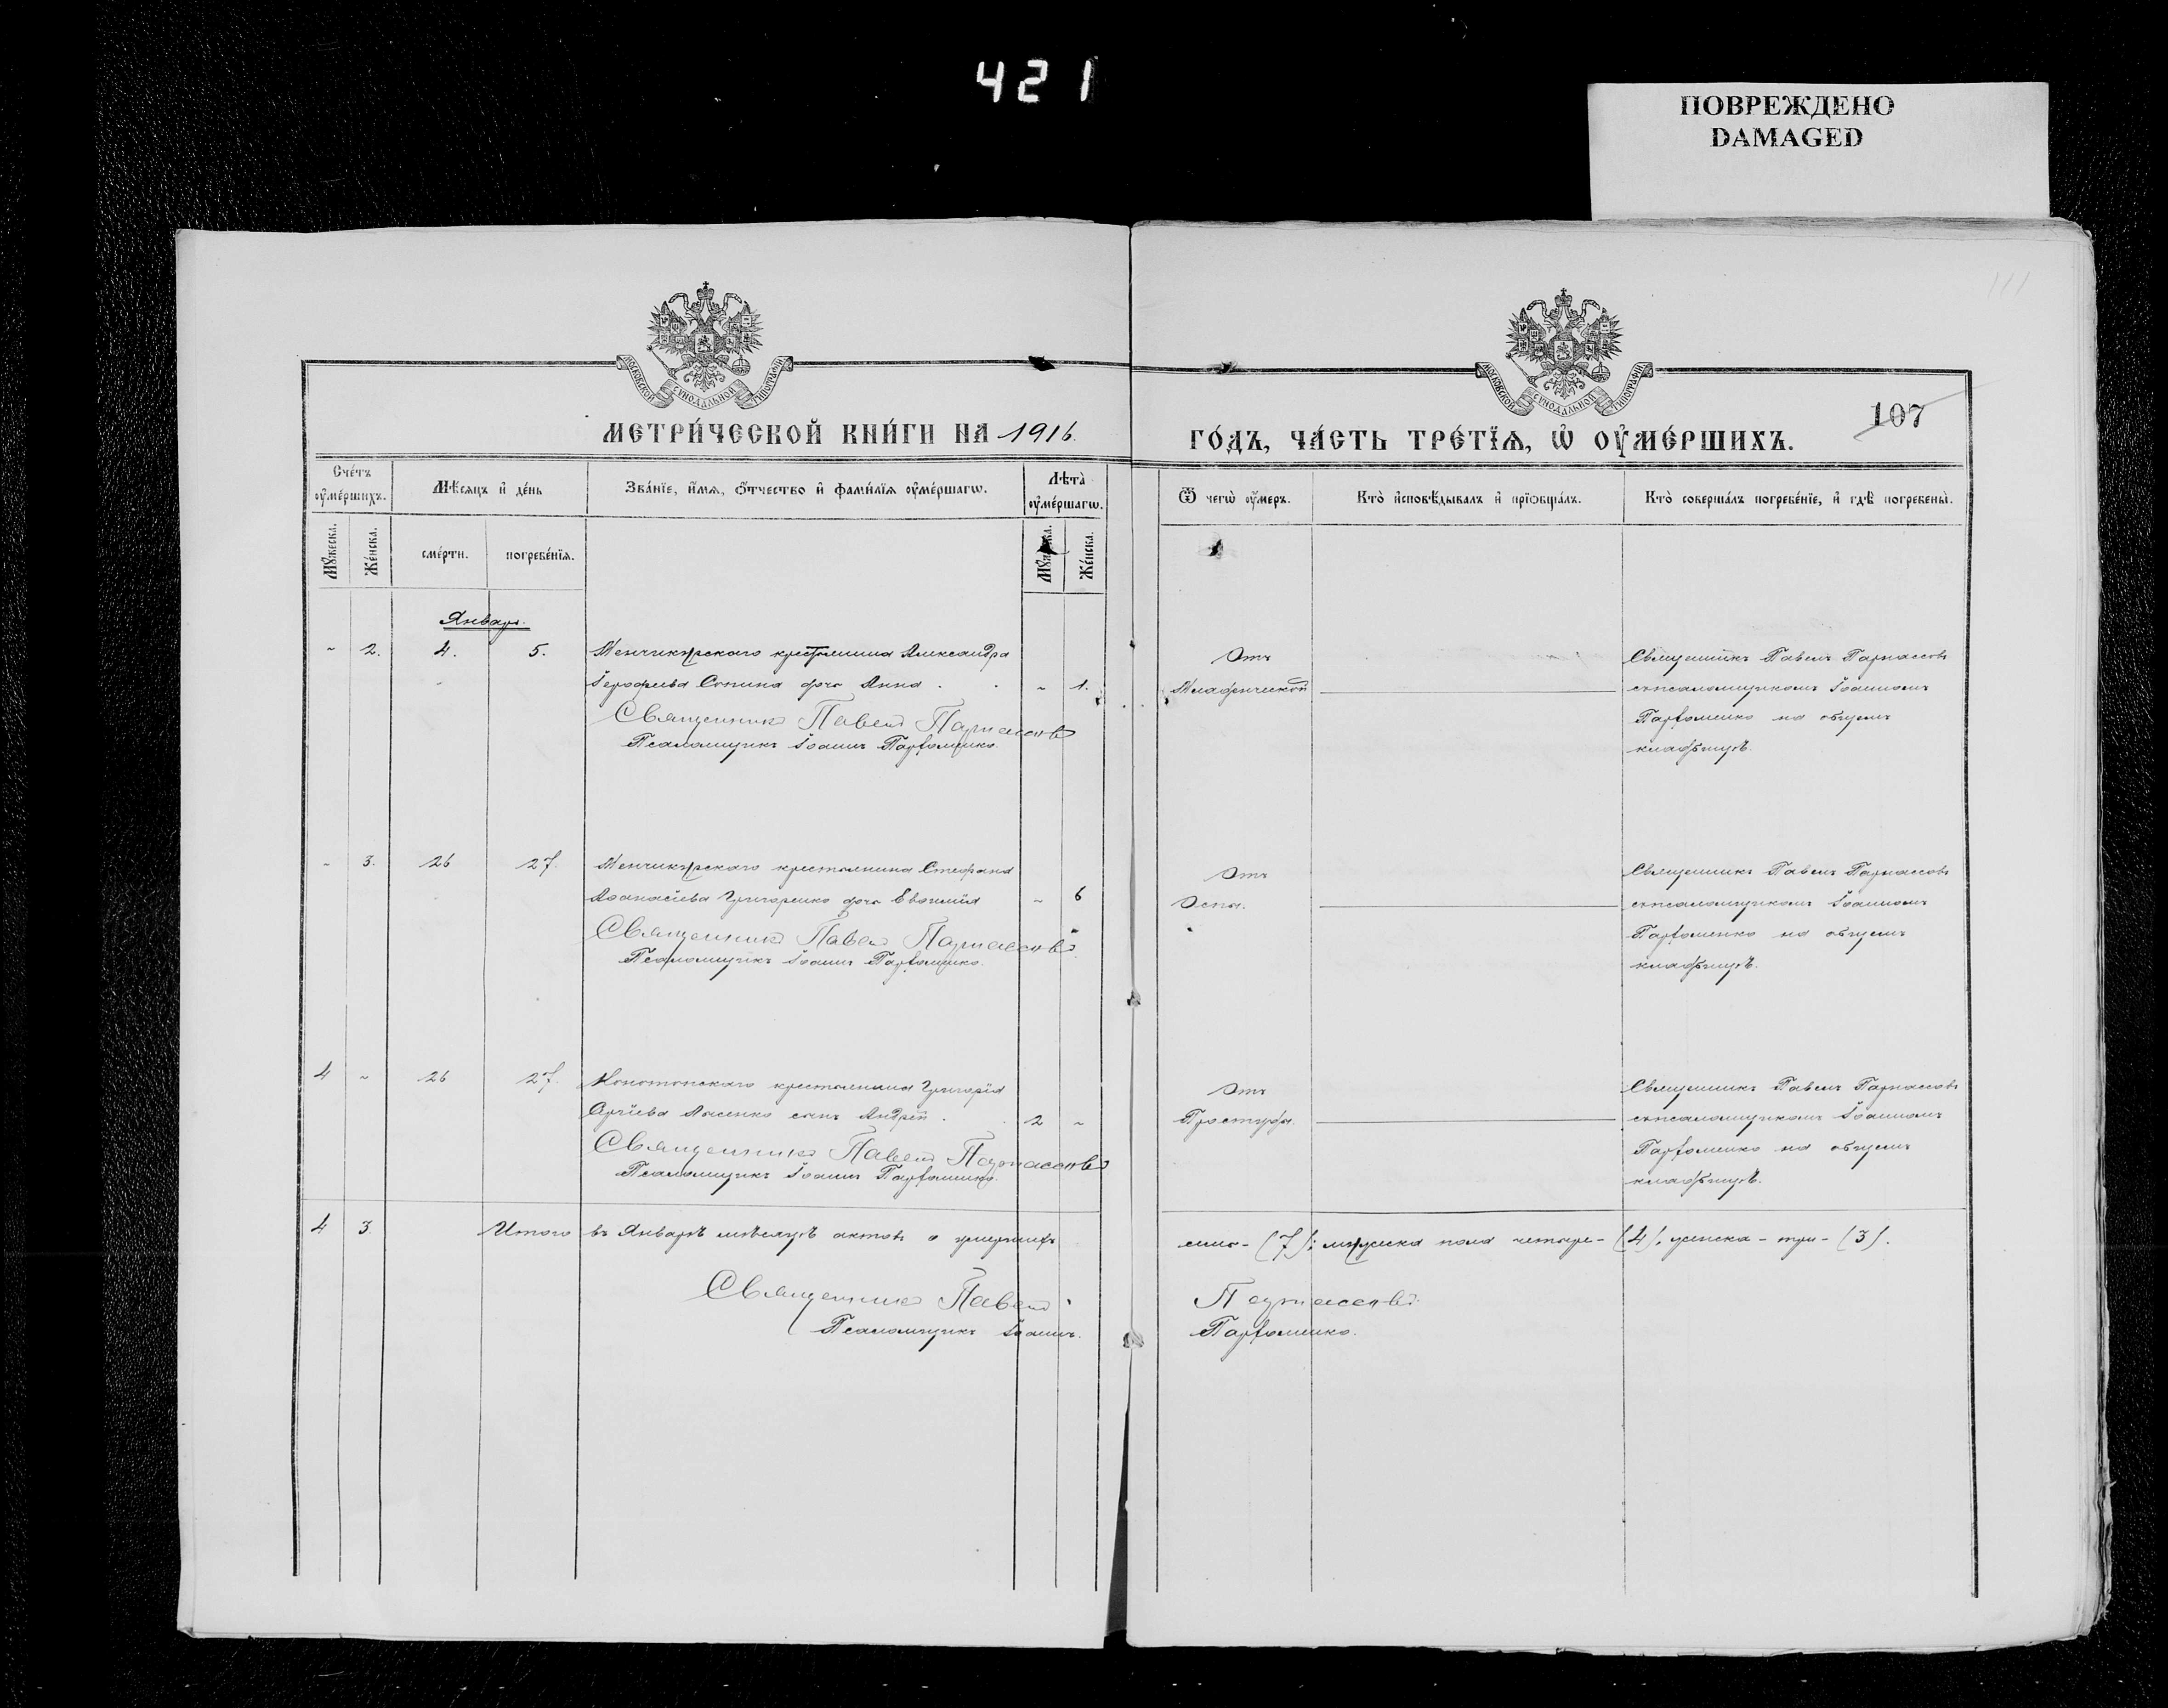 421
ПОВРЕЖДЕНО
DAMAGED
111
МОСКОВСКОЙ СУНОДАЛЬНОЙ ТИПОГРАФІИ
МОСКОВСКОЙ СУНОДАЛЬНОЙ ТИПОГРАФІИ
107
МЕТРИ́ЧЕСКОЙ КНИ́ГИ НА 1916
ГО́ДЪ, ЧА́СТЬ ТРЕ́ТЇѦ, Ѡ҆ ОУ҆МЕ́РШИХЪ.
Сче́тъ оу҆ме́ршихъ.
Мѣ́сѧцъ и҆ де́нь
Зва́нїе, и҆́мѧ, ѻ҆́тчество и҆ фами́лїѧ оу҆ме́ршагѡ.
Лѣ́та оу҆ме́ршагѡ.
Ѿ чегѡ̀ оу҆́меръ.
Кто̀ и҆сповѣ́дывалъ и҆ прїѻбща́лъ.
Кто̀ соверша́лъ погребе́нїе, и҆ гдѣ̀ погребены̀.
Мꙋ́жеска.
Же́нска.
сме́рти.
погребе́нїѧ.
Мꙋ́жеска.
Же́нска.
Январь.
~ 2. 4. 5. Менчикурскаго крестьянина Александра
Ерофеева Сопина дочь Анна. ~ 1.
Священникъ Павелъ Парнассовъ
Псаломщикъ Іоаннъ Парфоменко.
Отъ
Младенческой
Священникъ Павелъ Парнассовъ
съ псаломщикомъ Іоанномъ
Парфоменко на общемъ
кладбищѣ.
~ 3. 26 27. Менчикурскаго крестьянина Стефана
Аѳанасіева Григоренко дочь Евѳимія ~ 6
Священникъ Павелъ Парнассовъ.
Псаломщикъ Іоаннъ Парфоменко.
Отъ
Оспы.
Священникъ Павелъ Парнассовъ
съ псаломщикомъ Іоанномъ
Парфоменко на общемъ
кладбищѣ.
4 ~ 26 27. Конотопскаго крестьянина Григорія
Сергіева Лысенко сынъ Андрей. 2 ~
Священникъ Павелъ Парнассовъ
Псаломщикъ Іоаннъ Парфоменко.
Отъ
Простуды.
Священникъ Павелъ Парнассовъ
съ псаломщикомъ Іоанномъ
Парфоменко на общемъ
кладбищѣ.
4 3. Итого въ Январѣ мѣсяцѣ актовъ о умершихъ
семь-(7); мужеска пола четыре-(4), женска-три-(3).
Священникъ Павелъ Парнассовъ.
Псаломщикъ Іоаннъ. Парфоменко.